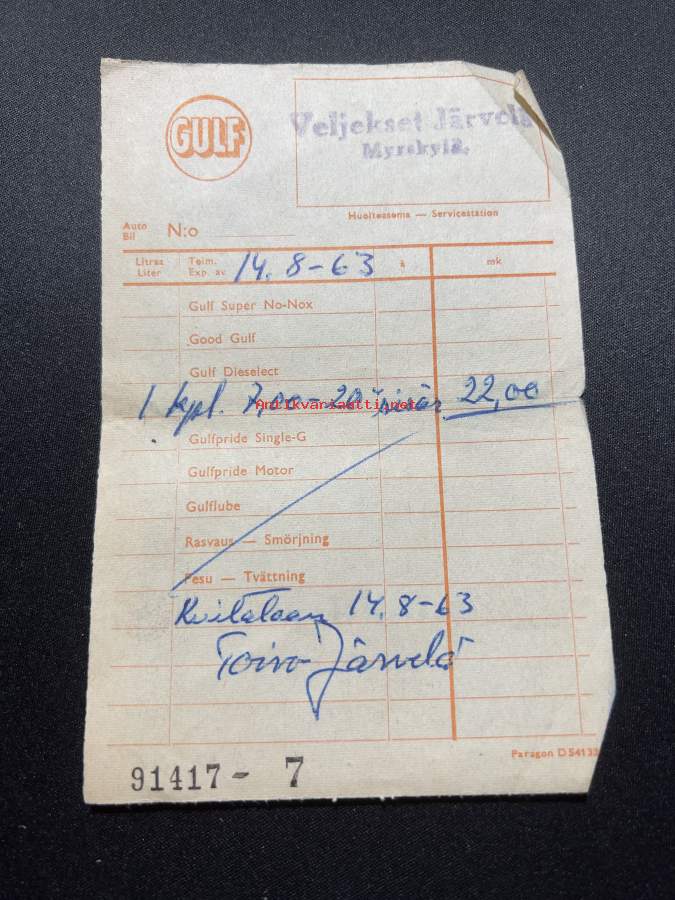 GULF
Veljekset Järvelä
Myrskylä.
Huoltoasema — Servicestation
Auto
Bil N:o
Litraa
Liter
Toim.
Exp. av 14.8-63 à mk
Gulf Super No-Nox
Good Gulf
Gulf Dieselect
1 kpl. 7.00-20" sisär 22,00
Antikvariaatti.net
Gulfpride Single-G
Gulfpride Motor
Gulflube
Rasvaus — Smörjning
Pesu — Tvättning
Kuitataan 14.8-63
Toivo Järvelä
Paragon D 54133
91417 - 7